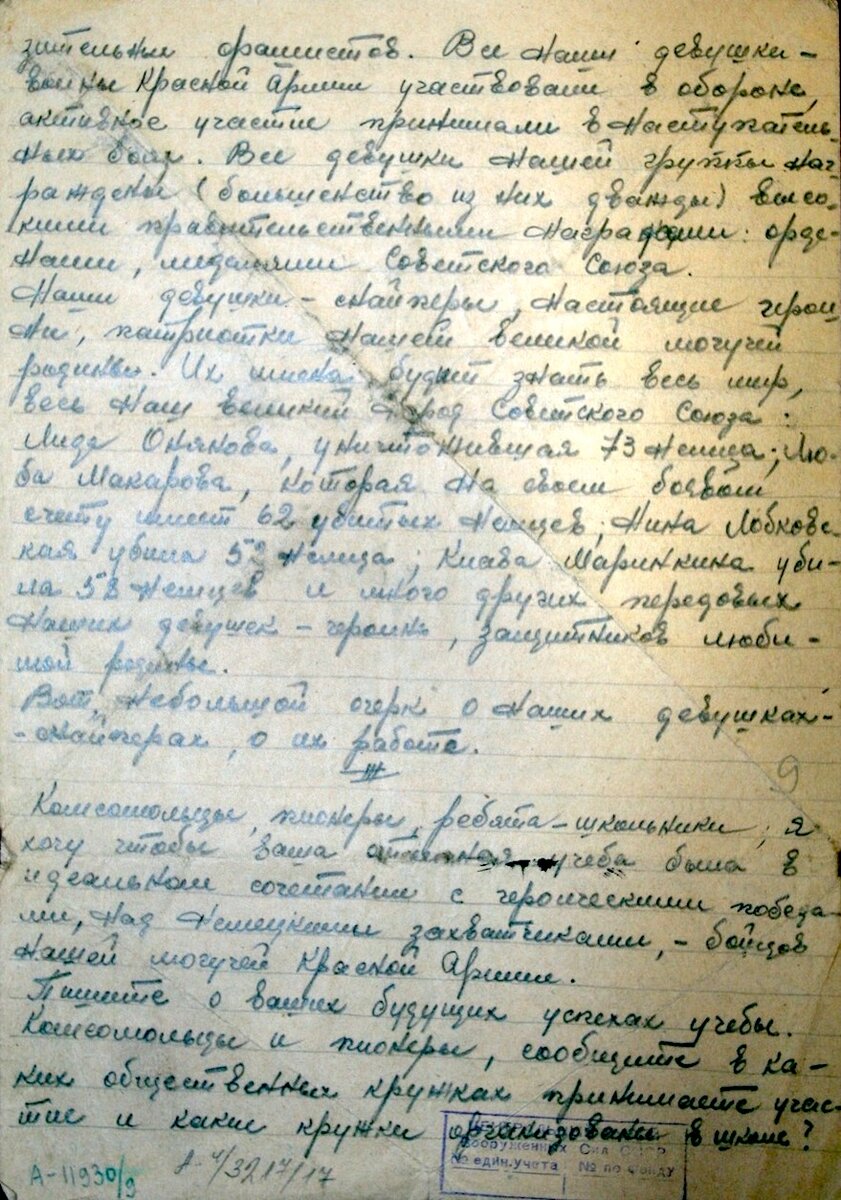 зительны фашистов. Все наши девушки –
воины Красной Армии участвовали в обороне,
активное участие принимали в наступатель-
ных боях. Все девушки нашей группы наг-
раждены (большенство из них дважды) высо-
кими правительственными наградами: орде-
нами, медалями Советского Союза.
Наши девушки – снайперы, настоящие герои-
ни, патриотки нашей великой могучей
родины. Их имена будет знать весь мир,
весь наш великий народ Советского Союза:
Лида Онянова, уничтожившая 73 немца; Лю-
ба Макарова, которая на своем боевом
счету имеет 62 убитых немцев; Нина Лобковс-
кая убила 52 немца; Клава Маринкина уби-
ла 58 немцев и много других передовых
наших девушек – героинь, защитников люби-
мой родины.
Вот, небольшой очерк о наших девушках-
-снайперах, о их работе.
9
Комсомольцы, пионеры, ребята-школьники, я
хочу чтобы ваша отличная учеба была в
идеальном сочетании с героическими победа-
ми, над немецкими захватчиками, – бойцов
нашей могучей Красной Армии.
Пишите о ваших будущих успехах учебы.
Комсомольцы и пионеры, сообщите в ка-
ких общественных кружках принимаете учас-
тие и какие кружки организованы в школе?
Вооруженных Сил СССР
№ един. учета № по фонду
А-11930/9 А-4/3217/17